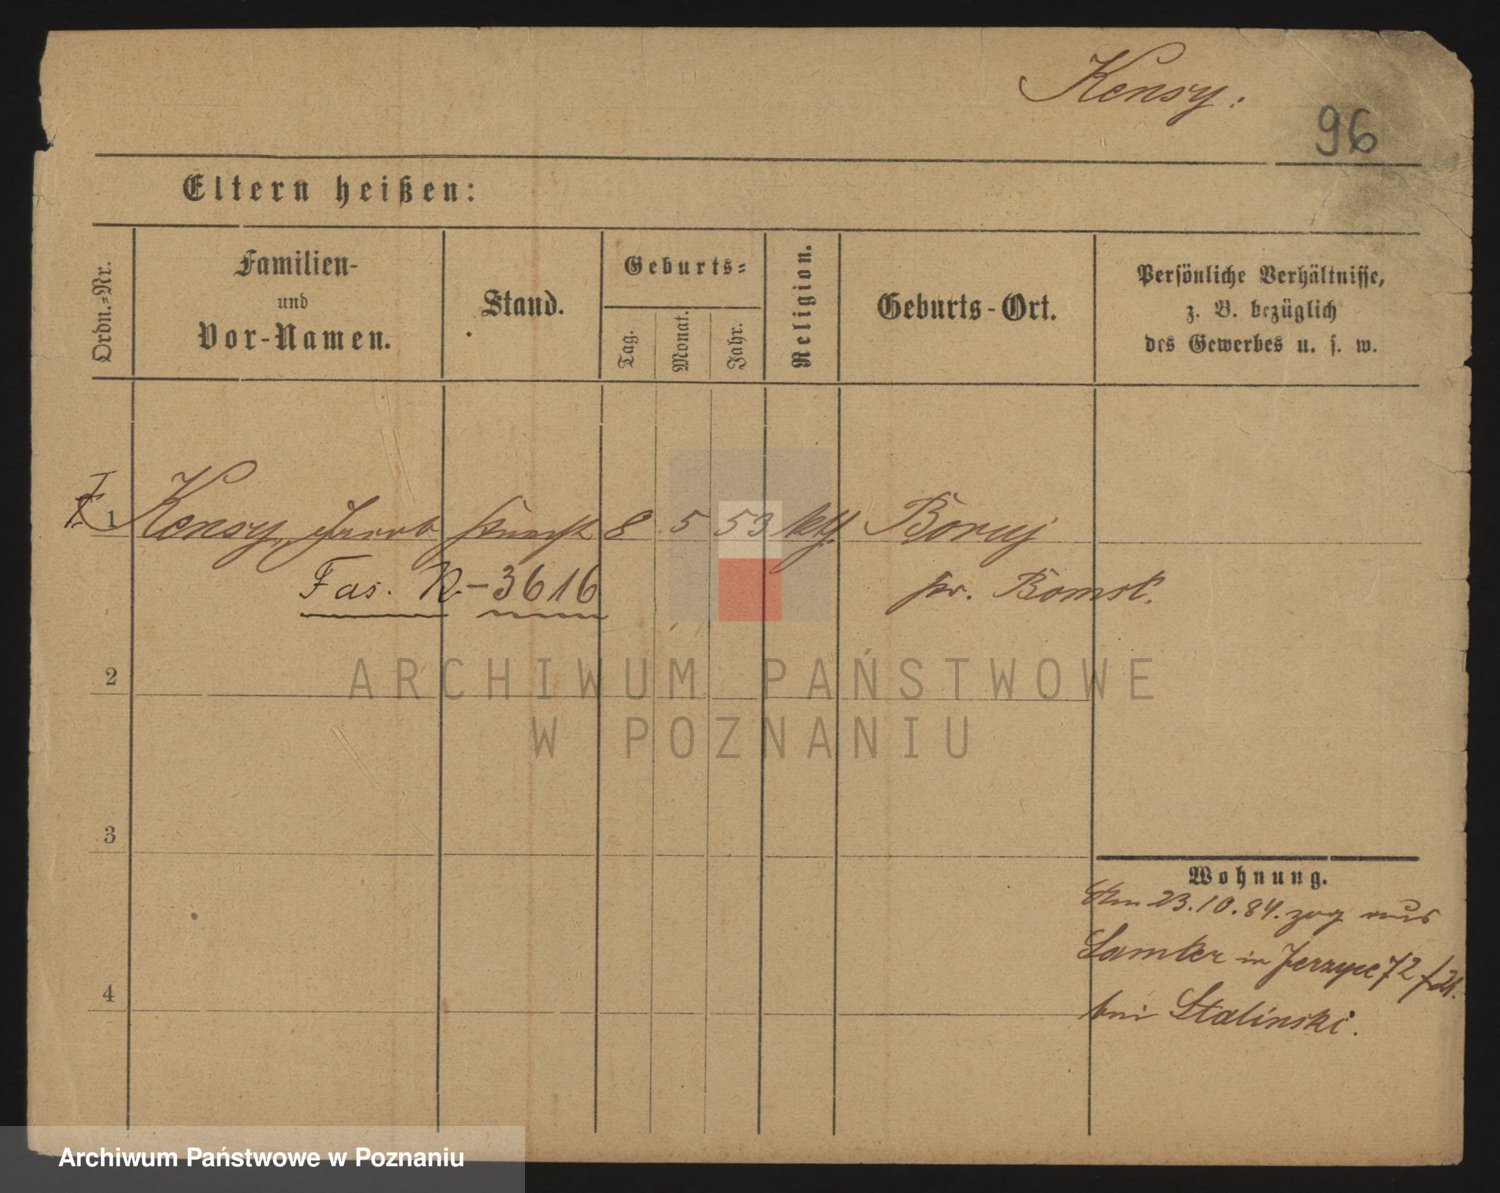 Kensy.
96
Eltern heißen:
Ordn.-Nr.
Familien-
und
Vor-Namen.
Stand.
Geburts-
Tag.
Monat.
Jahr.
Religion.
Geburts-Ort.
Persönliche Verhältnisse,
z. B. bezüglich
des Gewerbes u. s. w.
1 Kensy, Jacob Knecht 8 5 53 kth. Boruj
Fas. K-3616
pr. Bomst.
ARCHIWUM PAŃSTWOWE
W POZNANIU
2
3
4
Wohnung.
Am 23.10.84. zog aus
Samter in Jerzyce 72
bei Stalinski.
Archiwum Państwowe w Poznaniu